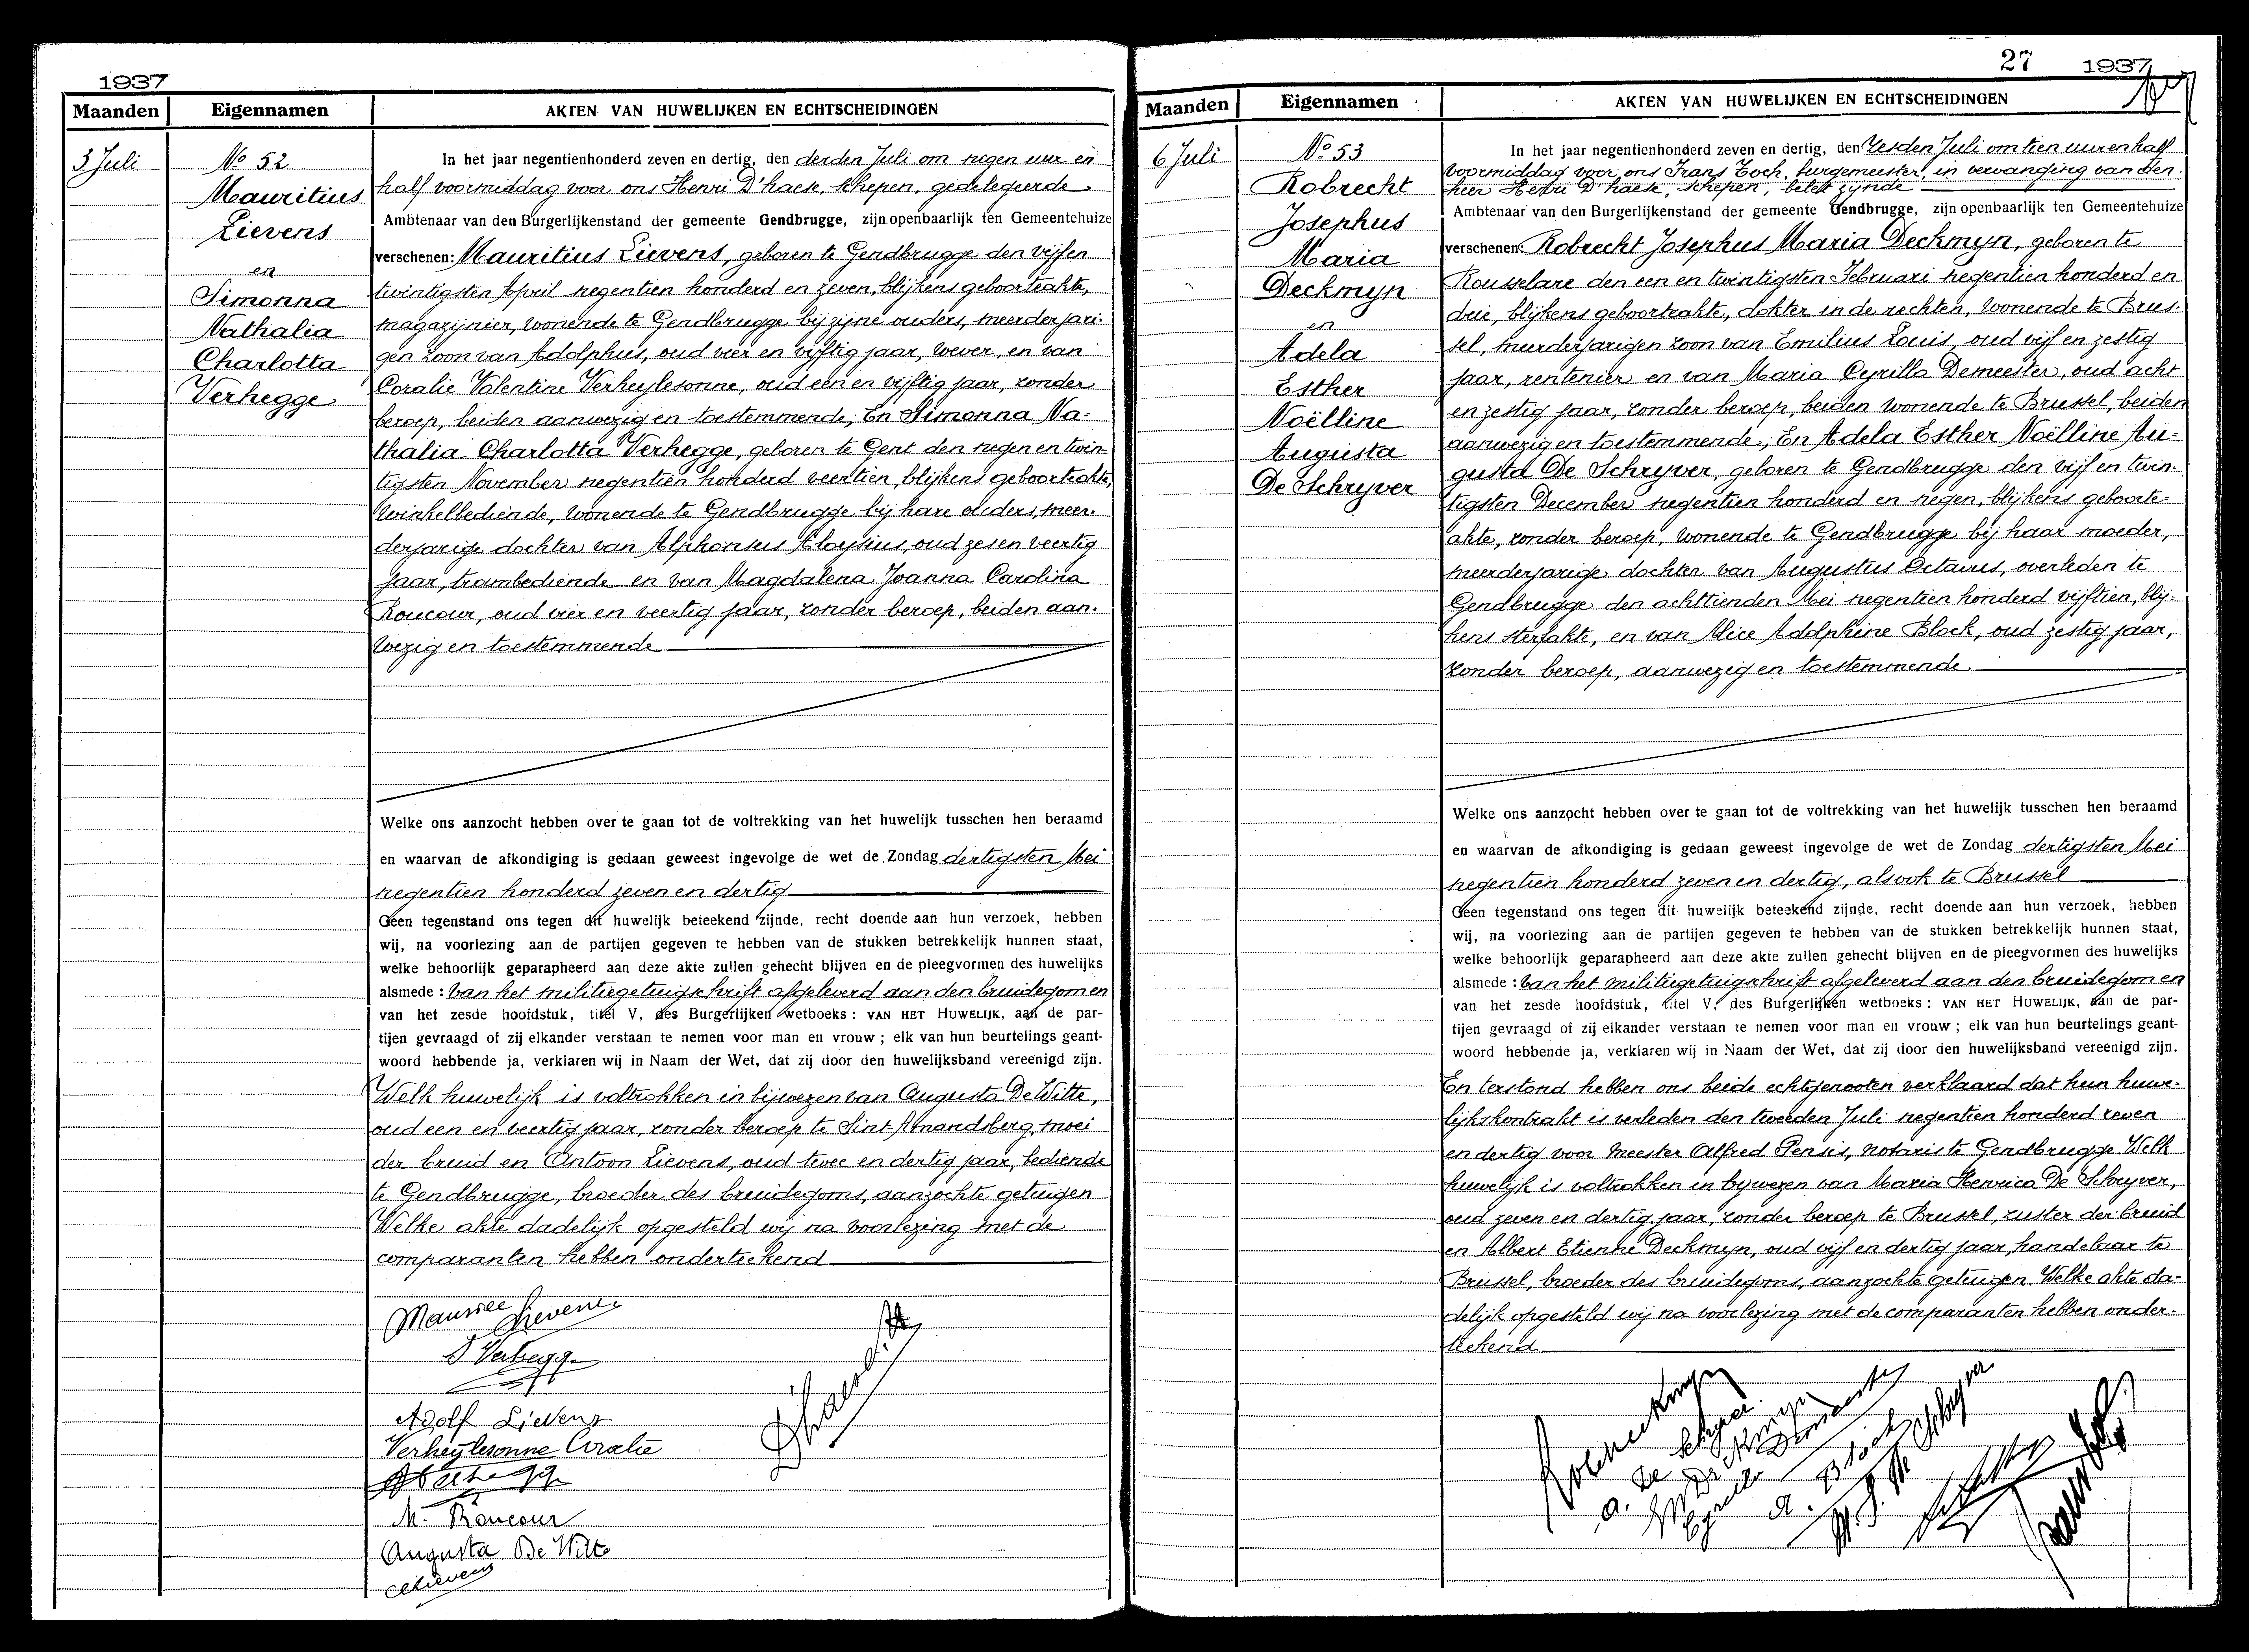 1937
Maanden Eigennamen AKTEN VAN HUWELIJKEN EN ECHTSCHEIDINGEN
3 Juli
No 52
Mauritius
Lievens
en
Simonna
Nathalia
Charlotta
Verhegge
In het jaar negentienhonderd zeven en dertig, den derden Juli om negen uur en
half voormiddag voor ons Henri D'haese, schepen, gedelegeerde
Ambtenaar van den Burgerlijkenstand der gemeente Gendbrugge, zijn openbaarlijk ten Gemeentehuize
verschenen: Mauritius Lievens, geboren te Gendbrugge den vijfen
twintigsten April negentien honderd en zeven, blijkens geboorteakte,
magazijnier, wonende te Gendbrugge bij zijne ouders, meerderjari-
gen zoon van Adolphus, oud vier en vijftig jaar, wever, en van
Coralie Valentine Verheylesonne, oud een en vijftig jaar, zonder
beroep, beiden aanwezig en toestemmende; En Simonna Na-
thalia Charlotta Verhegge, geboren te Gent den negen en twin-
tigsten November negentien honderd veertien, blijkens geboorteakte,
winkelbediende, wonende te Gendbrugge bij hare ouders, meer-
derjarige dochter van Alphonsus Aloysius, oud zes en veertig
jaar, trambediende en van Magdalena Joanna Carolina
Roucour, oud vier en veertig jaar, zonder beroep, beiden aan-
wezig en toestemmende
Welke ons aanzocht hebben over te gaan tot de voltrekking van het huwelijk tusschen hen beraamd
en waarvan de afkondiging is gedaan geweest ingevolge de wet de Zondag dertigsten Mei
negentien honderd zeven en dertig
Geen tegenstand ons tegen dit huwelijk beteekend zijnde, recht doende aan hun verzoek, hebben
wij, na voorlezing aan de partijen gegeven te hebben van de stukken betrekkelijk hunnen staat,
welke behoorlijk geparapheerd aan deze akte zullen gehecht blijven en de pleegvormen des huwelijks
alsmede: van het militiegetuigschrift afgeleverd aan den bruidegom en
van het zesde hoofdstuk, titel V, des Burgerlijken wetboeks: VAN HET HUWELIJK, aan de par-
tijen gevraagd of zij elkander verstaan te nemen voor man en vrouw; elk van hun beurtelings geant-
woord hebbende ja, verklaren wij in Naam der Wet, dat zij door den huwelijksband vereenigd zijn.
Welk huwelijk is voltrokken in bijwezen van Augusta De Witte,
oud een en veertig jaar, zonder beroep te Sint Amandsberg, moei
der bruid en Antoon Lievens, oud twee en dertig jaar, bediende
te Gendbrugge, broeder des bruidegoms, aanzochte getuigen
Welke akte dadelijk opgesteld wij na voorlezing met de
comparanten hebben onderteekend
Maurice Lievens
S Verhegge
Adolf Lievens
Verheylesonne Coralie
A Verhegge
M. Roucour
Augusta De Witte
A Lievens
27 1937
Maanden Eigennamen AKTEN VAN HUWELIJKEN EN ECHTSCHEIDINGEN
6 Juli
No 53
Robrecht
Josephus
Maria
Deckmyn
en
Adela
Esther
Noëlline
Augusta
De Schryver
In het jaar negentienhonderd zeven en dertig, den zesden Juli om tien uur en half
voormiddag voor ons Frans Toch, burgemeester, in vervanging van den
heer Henri D'haese, schepen, belet zijnde
Ambtenaar van den Burgerlijkenstand der gemeente Gendbrugge, zijn openbaarlijk ten Gemeentehuize
verschenen: Robrecht Josephus Maria Deckmyn, geboren te
Rousselare den een en twintigsten Februari negentien honderd en
drie, blijkens geboorteakte, dokter in de rechten, wonende te Brus-
sel, meerderjarigen zoon van Emilius Louis, oud vijf en zestig
jaar, rentenier en van Maria Cyrilla Demeester, oud acht
en zestig jaar, zonder beroep, beiden wonende te Brussel, beiden
aanwezig en toestemmende; En Adela Esther Noëlline Au-
gusta De Schryver, geboren te Gendbrugge den vijf en twin-
tigsten December negentien honderd en negen, blijkens geboorte-
akte, zonder beroep, wonende te Gendbrugge bij haar moeder,
meerderjarige dochter van Augustus Octavus, overleden te
Gendbrugge den achttienden Mei negentien honderd vijftien, blij-
kens sterfakte, en van Alice Adolphine Block, oud zestig jaar,
zonder beroep, aanwezig en toestemmende
Welke ons aanzocht hebben over te gaan tot de voltrekking van het huwelijk tusschen hen beraamd
en waarvan de afkondiging is gedaan geweest ingevolge de wet de Zondag dertigsten Mei
negentien honderd zeven en dertig, alsook te Brussel
Geen tegenstand ons tegen dit huwelijk beteekend zijnde, recht doende aan hun verzoek, hebben
wij, na voorlezing aan de partijen gegeven te hebben van de stukken betrekkelijk hunnen staat,
welke behoorlijk geparapheerd aan deze akte zullen gehecht blijven en de pleegvormen des huwelijks
alsmede: van het militiegetuigschrift afgeleverd aan den bruidegom en
van het zesde hoofdstuk, titel V, des Burgerlijken wetboeks: VAN HET HUWELIJK, aan de par-
tijen gevraagd of zij elkander verstaan te nemen voor man en vrouw; elk van hun beurtelings geant-
woord hebbende ja, verklaren wij in Naam der Wet, dat zij door den huwelijksband vereenigd zijn.
En terstond hebben ons beide echtgenooten verklaard dat hun huwe-
lijkskontrakt is verleden den tweeden Juli negentien honderd zeven
en dertig voor Meester Alfred Pensis, notaris te Gendbrugge Welk
huwelijk is voltrokken in bijwezen van Maria Henrica De Schryver,
oud zeven en dertig jaar, zonder beroep te Brussel, zuster der bruid
en Albert Etienne Deckmyn, oud vijf en dertig jaar, handelaar te
Brussel, broeder des bruidegoms, aanzochte getuigen Welke akte da-
delijk opgesteld wij na voorlezing met de comparanten hebben onder-
teekend
A. De Schryver
Cyrilla Demeester
A. Block